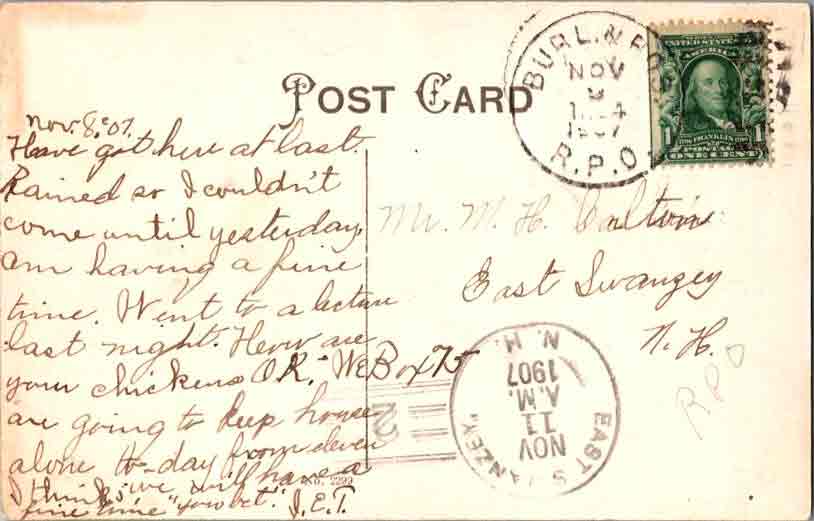 POST CARD
BURL.N
NOV
1907
R.P.O.
UNITED STATES
AMERICA
FRANKLIN
1 1
POSTAGE
ONE CENT
Nov. 8, '07.
Have got here at last.
Rained so I couldn't
come until yesterday,
am having a fine
time. Went to a lecture
last night. How are
your chickens O.K., We
are going to keep house
alone to-day from eleven
I think we will have a
fine time "you bet." J.E.T.
Mr. M. H.
East Swanzey
N. H.
Box 75
RPO
EAST SWANZEY
NOV
11
A.M.
1907
N. H.
2
2299